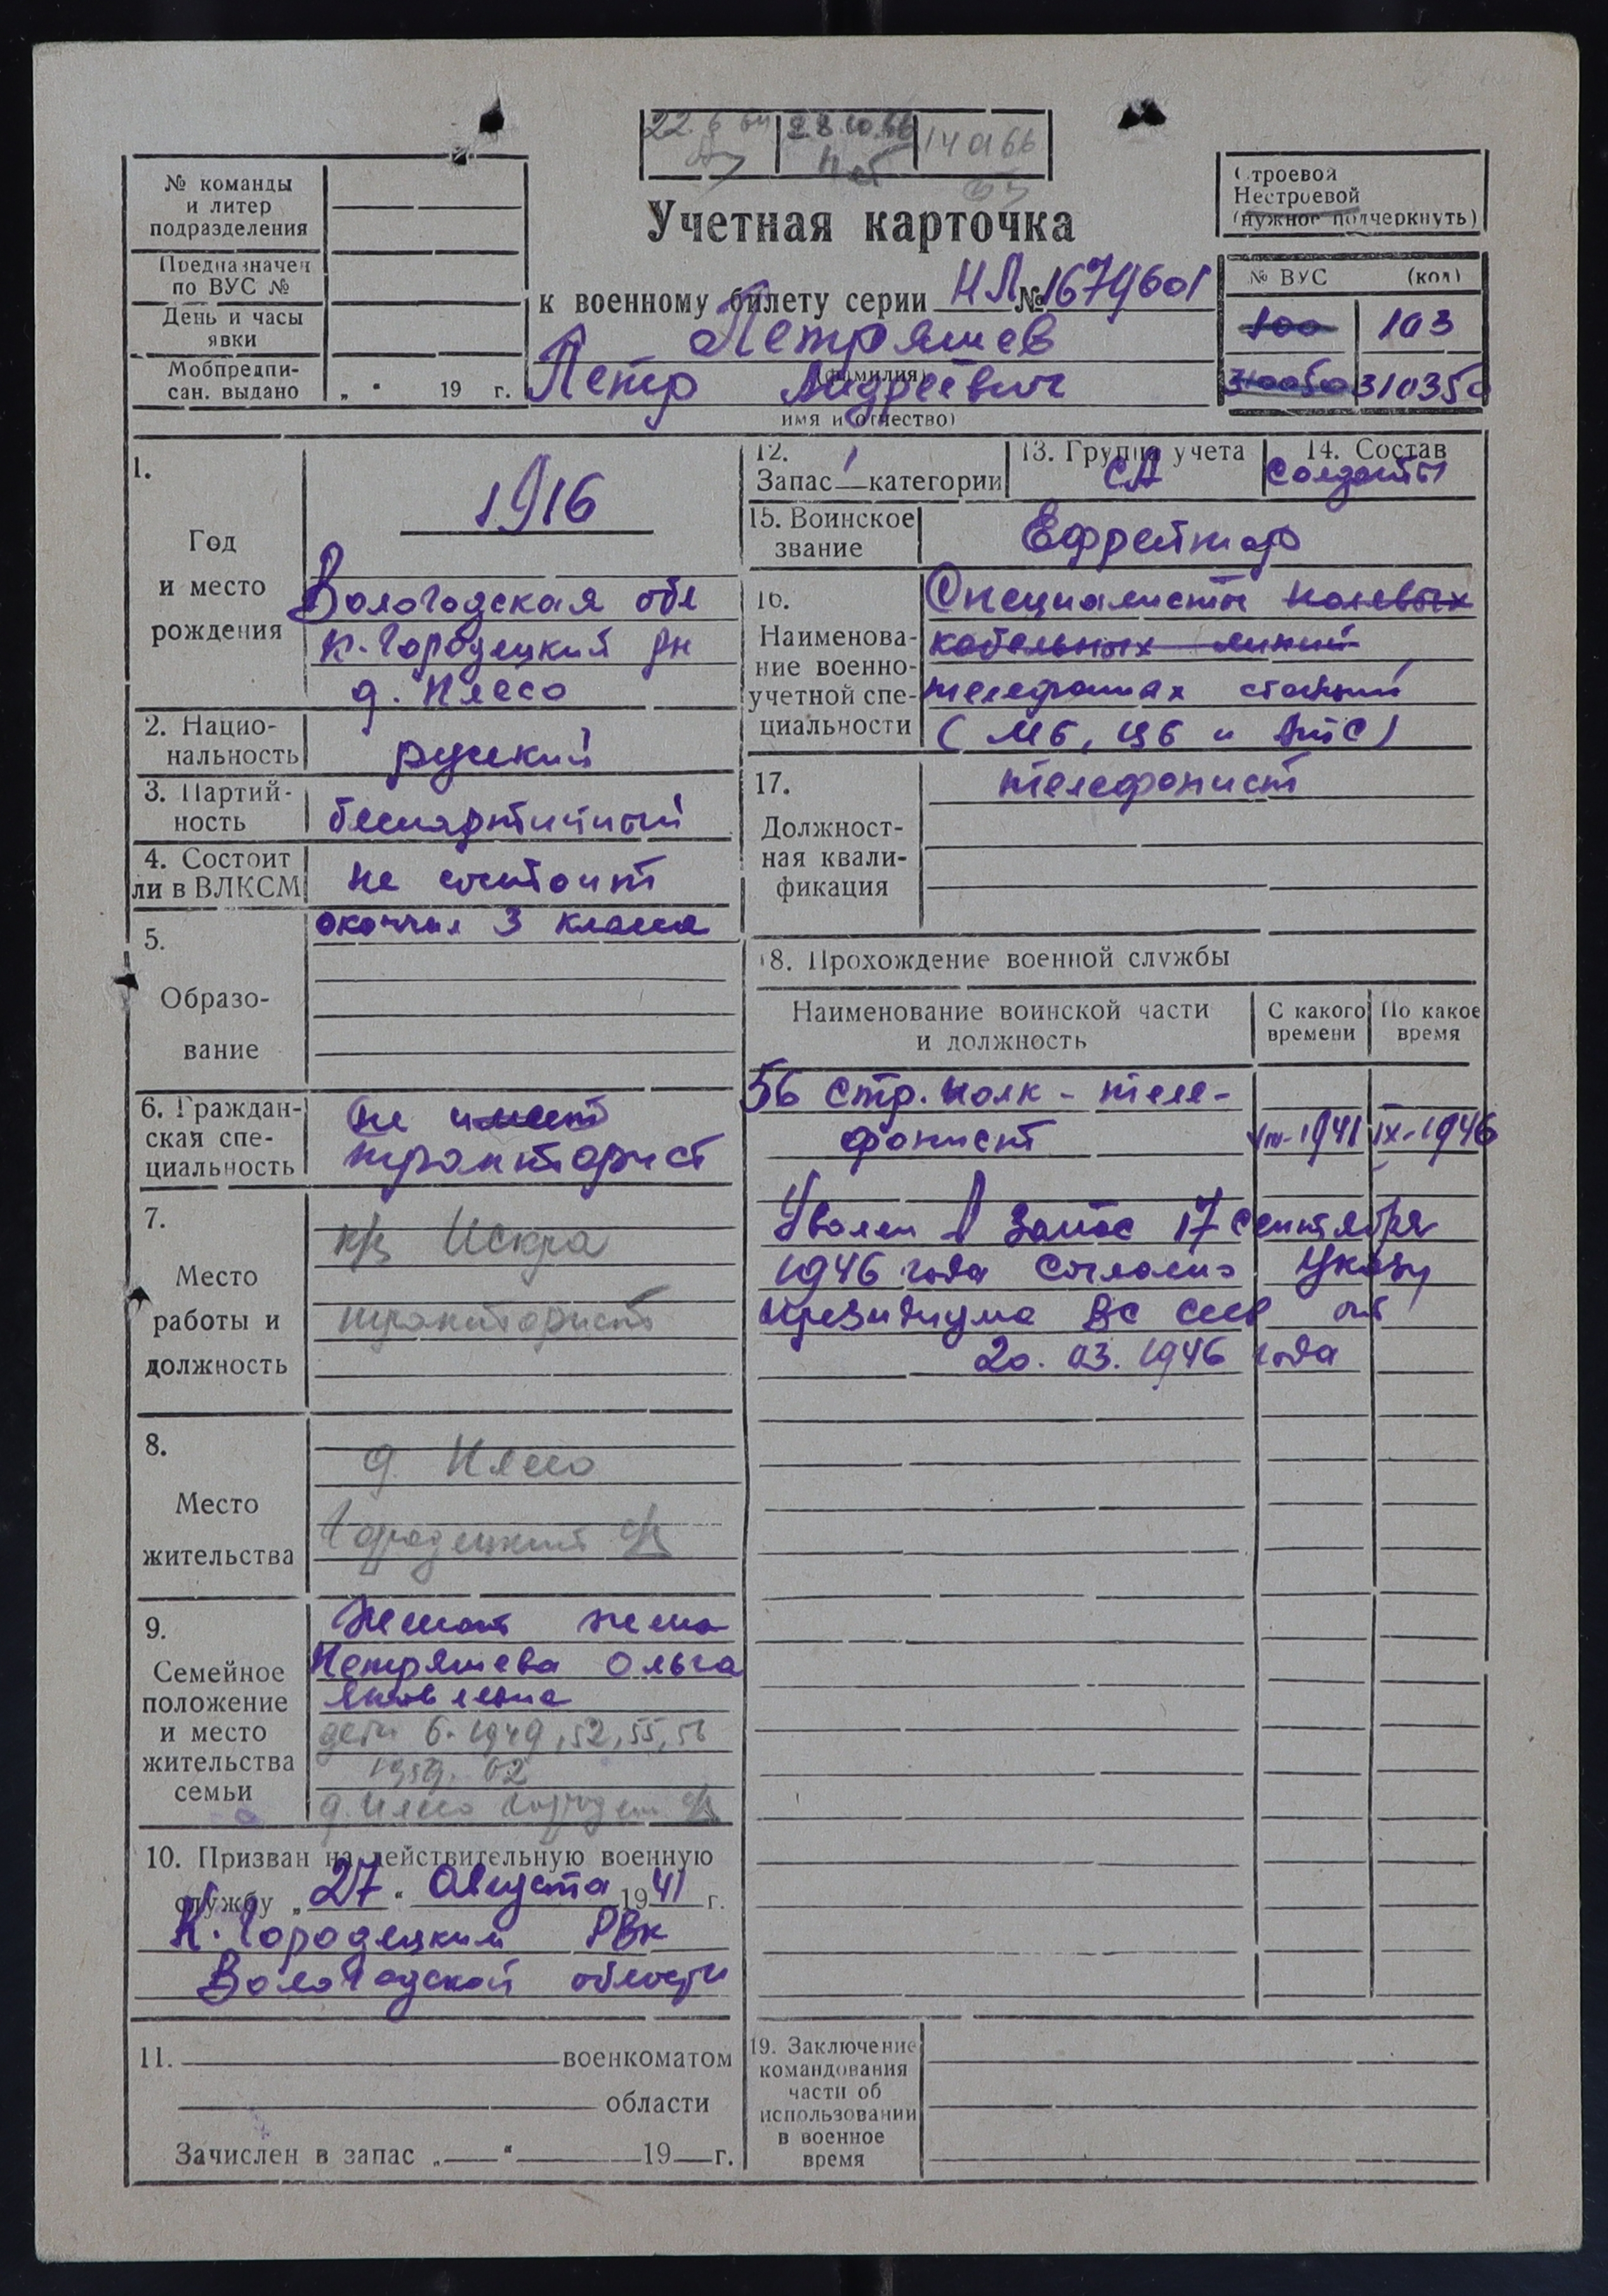 22.6.64
28.10.66
14 01 66
№ команды
и литер
подразделения
Предназначен
по ВУС №
День и часы
явки
Мобпредпи-
сан. выдано „ “ 19 г.
Учетная карточка
к военному билету серии НЛ № 1679601
Петряшев
(фамилия)
Петр Андреевич
имя и отчество)
Строевой
Нестроевой
(нужное подчеркнуть)
№ ВУС (код)
100 103
310050 310350
1.
Год
и место
рождения
1916
Вологодская обл
К-Городецкий рн
д. Плесо
2. Нацио-
нальность
русский
3. Партий-
ность
беспартийный
4. Состоит
ли в ВЛКСМ
не состоит
5.
Образо-
вание
окончил 3 класса
6. Граждан-
ская спе-
циальность
не имеет
тракторист
7.
Место
работы и
должность
к/з Искра
тракторист
8.
Место
жительства
д. Плесо
Городецкий
9.
Семейное
положение
и место
жительства
семьи
Женат жена
Петряшева Ольга
Яковлевна
дети 6. 1949, 52, 55, 56
1959. 62
д. Плесо
10. Призван на действительную военную
службу „27“ Августа 1941 г.
К. Городецким РВК
Вологодской области
11. военкоматом
области
Зачислен в запас „ “ 19 г.
12.
Запас 1 категории
13. Группа учета
СА
14. Состав
Солдаты
15. Воинское
звание
Ефрейтор
16.
Наименова-
ние военно-
учетной спе-
циальности
Специалисты полевых
кабельных линий
телефонных станций
( МБ, ЦБ и АТС )
17.
Должност-
ная квали-
фикация
телефонист
18. Прохождение военной службы
Наименование воинской части
и должность
С какого
времени
По какое
время
56 стр. полк - теле-
фонист VIII-1941 IX-1946
Уволен в запас 17 сентября
1946 года согласно Указу
президиума ВС СССР от
20. 03. 1946 года
19. Заключение
командования
части об
использовании
в военное
время